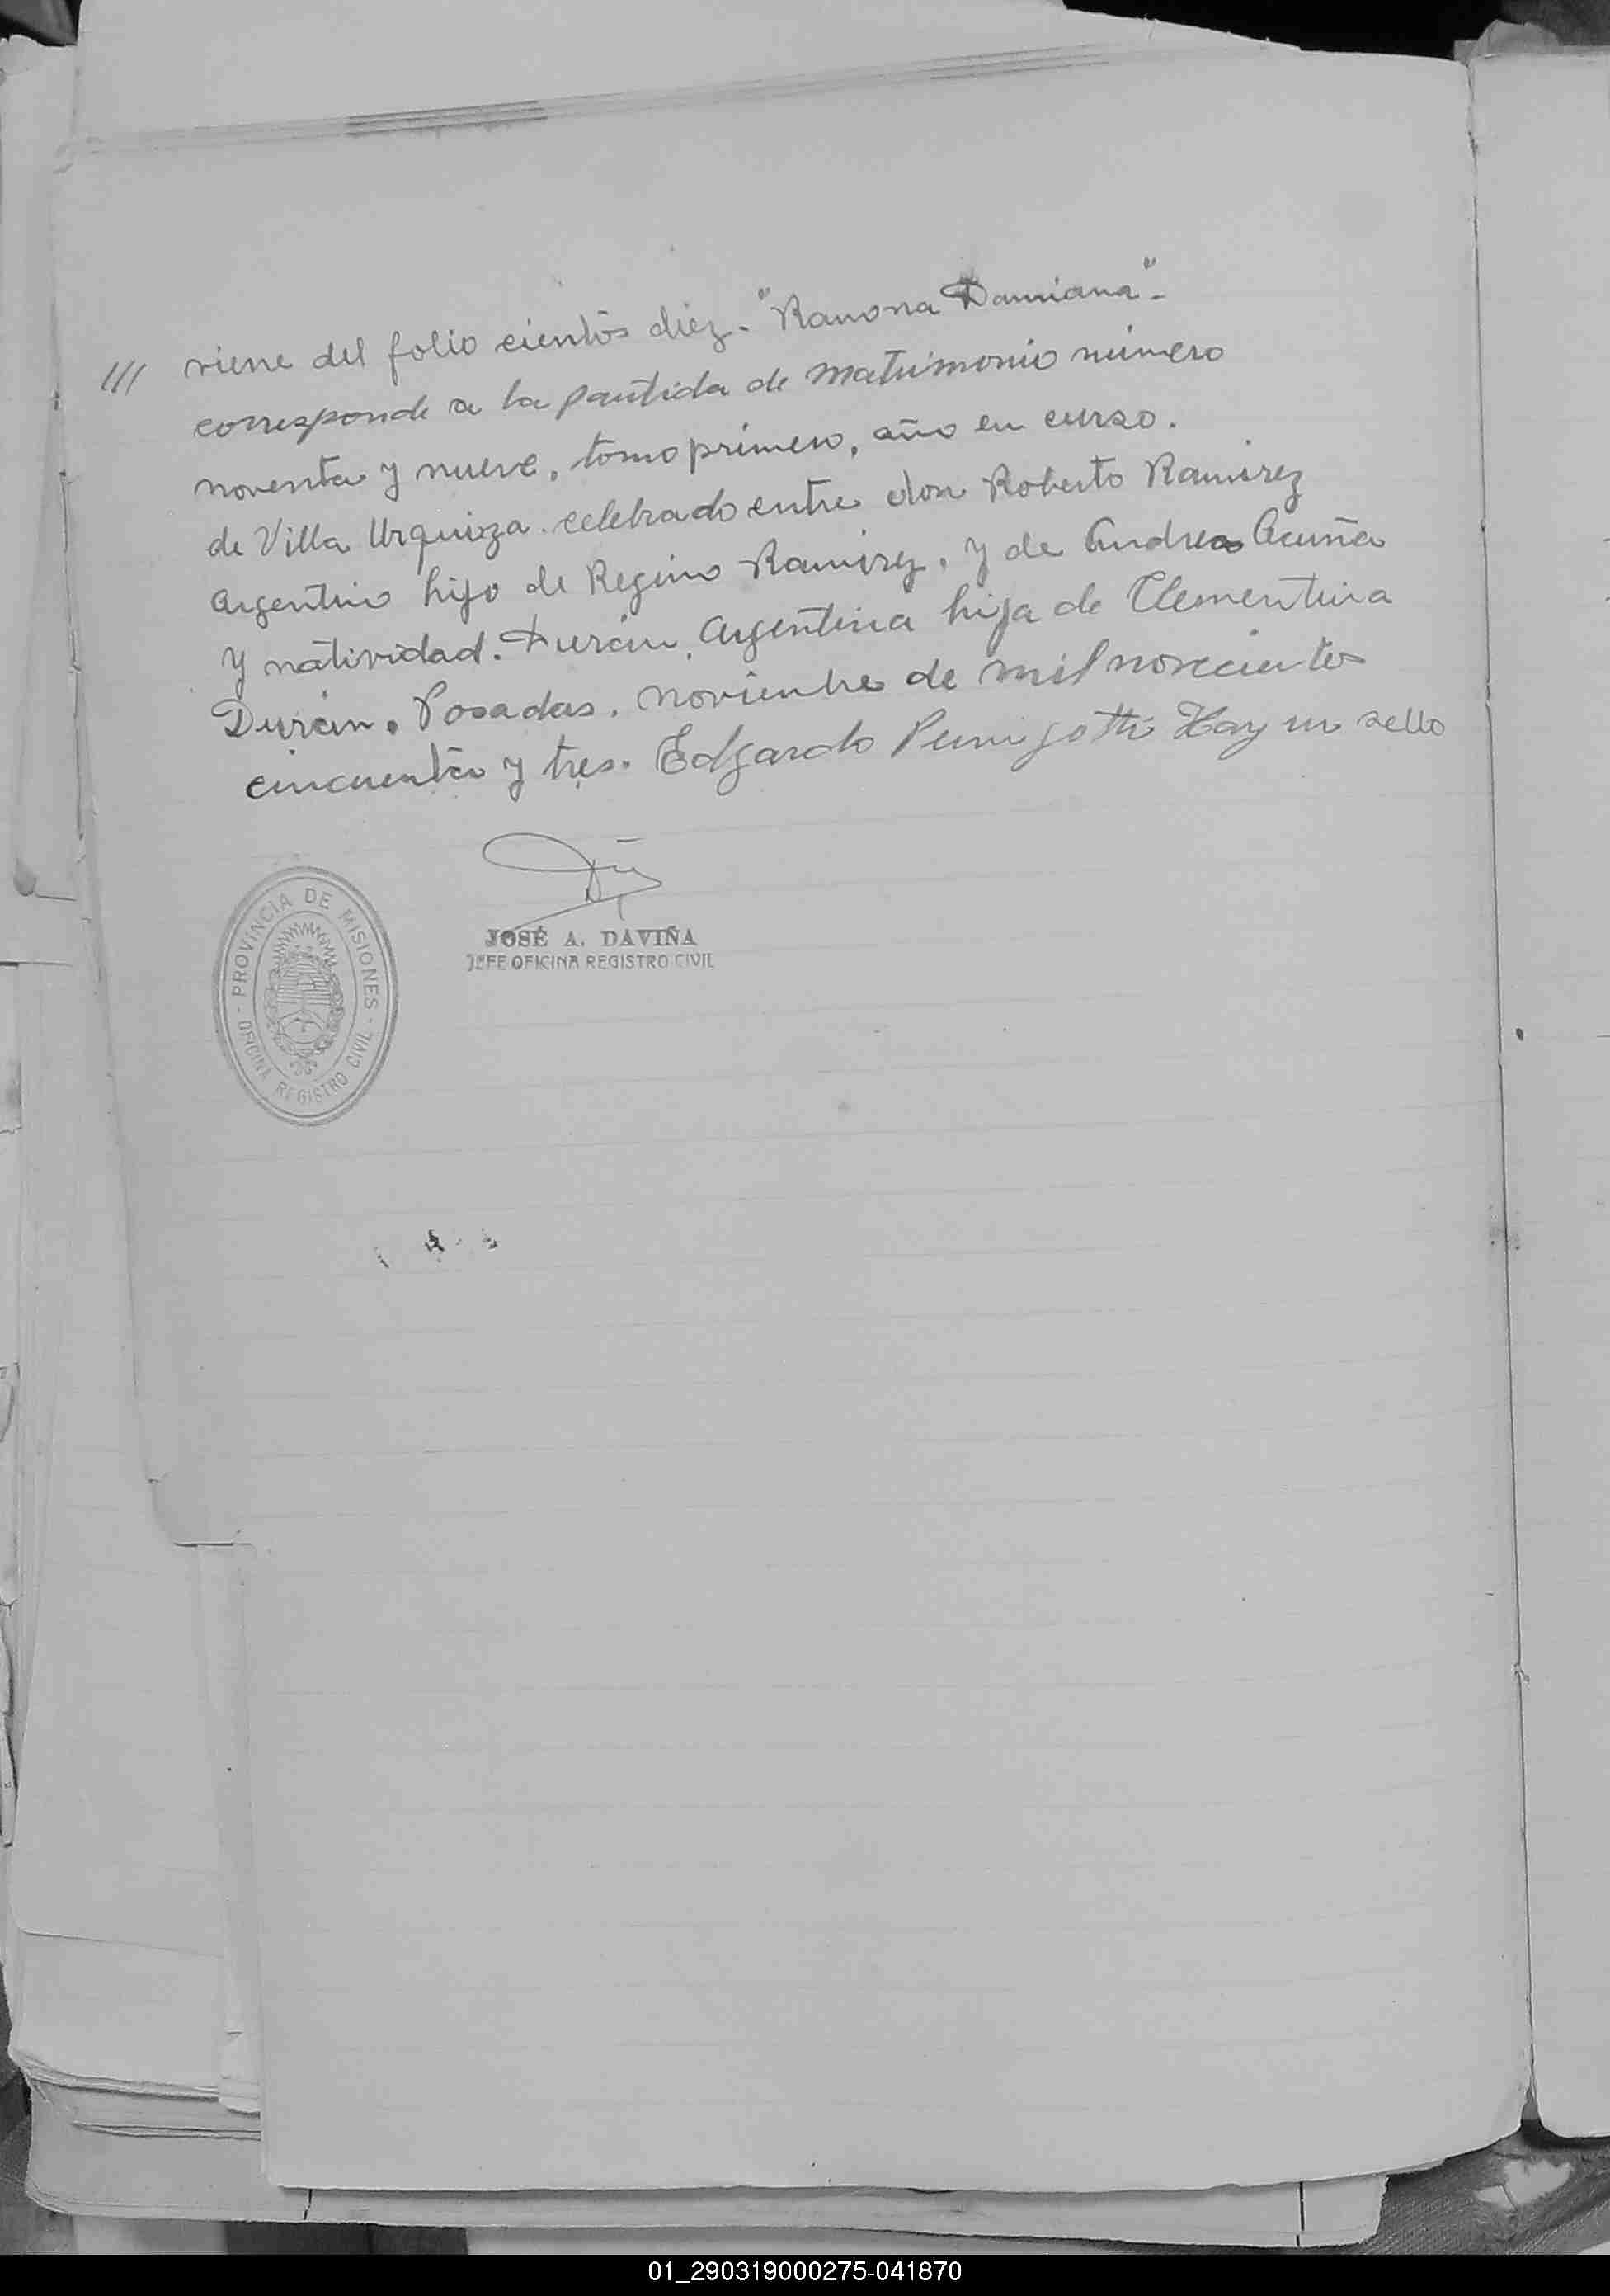 /// viene del folio cientos diez. "Ramona Damiana"-
corresponde a la partida de matrimonio número
noventa y nueve, tomo primero, año en curso.
de Villa Urquiza. celebrado entre don Roberto Ramirez
argentino hijo de Regino Ramirez, y de Andrea Acuña
y natividad. Durán, argentina hija de Clementina
Durán. Posadas, noviembre de mil novecientos
cincuenta y tres. Edgardo Hay un sello
JOSÉ A. DAVIÑA
JEFE OFICINA REGISTRO CIVIL
PROVINCIA DE MISIONES
- OFICINA REGISTRO CIVIL -
01_290319000275-041870